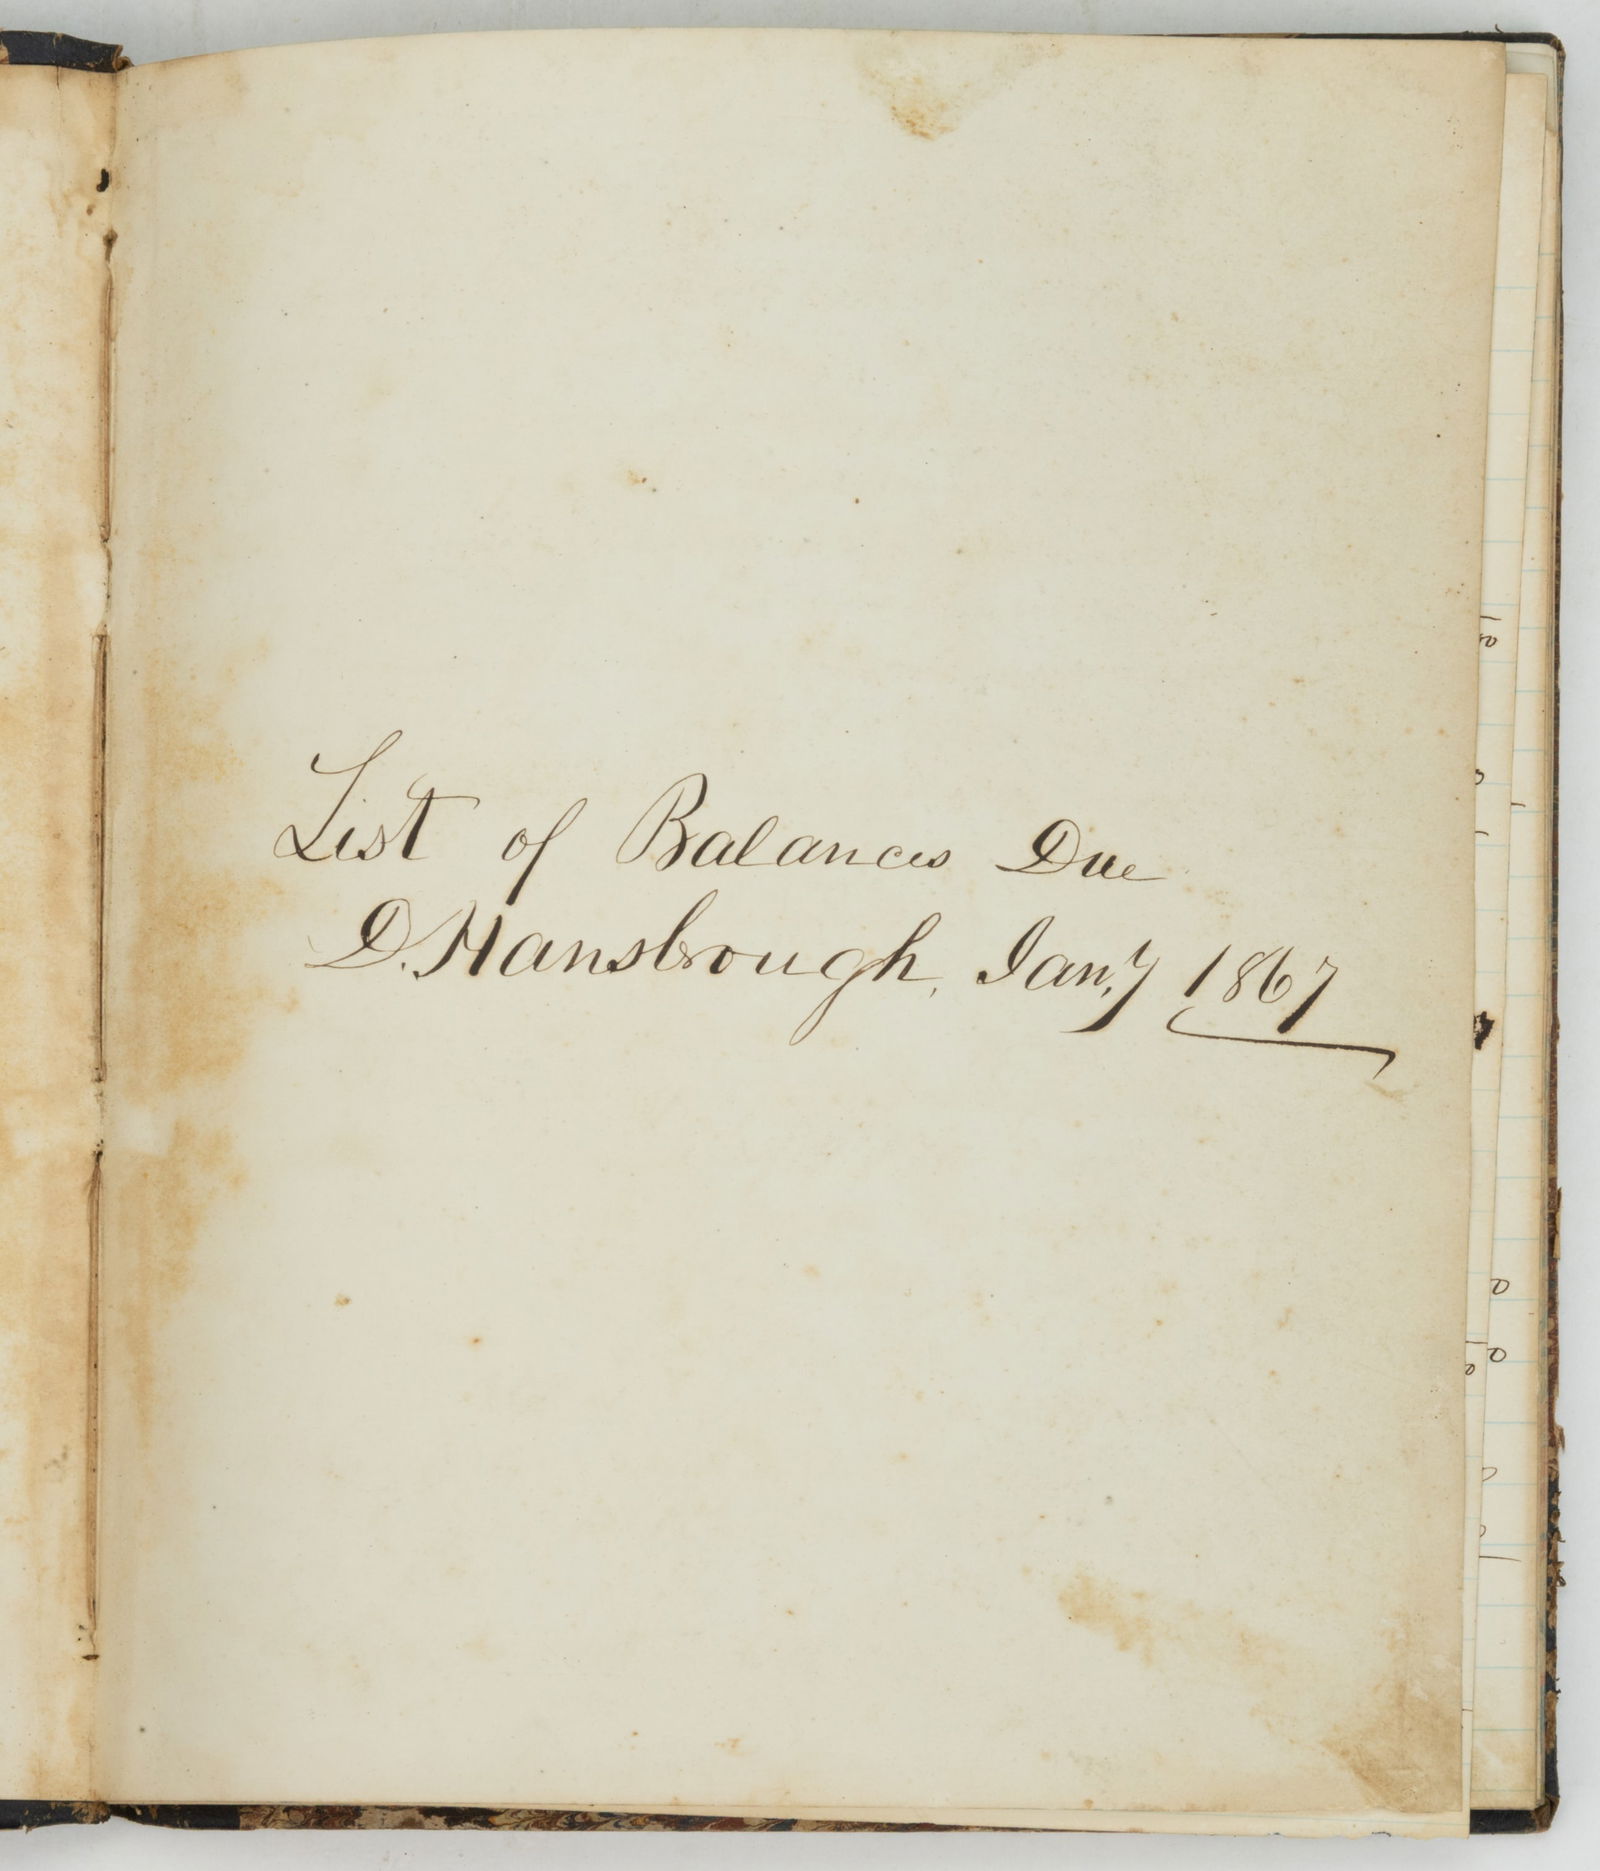 List of Balances Due
D. Hansbrough, Jan,y 1867